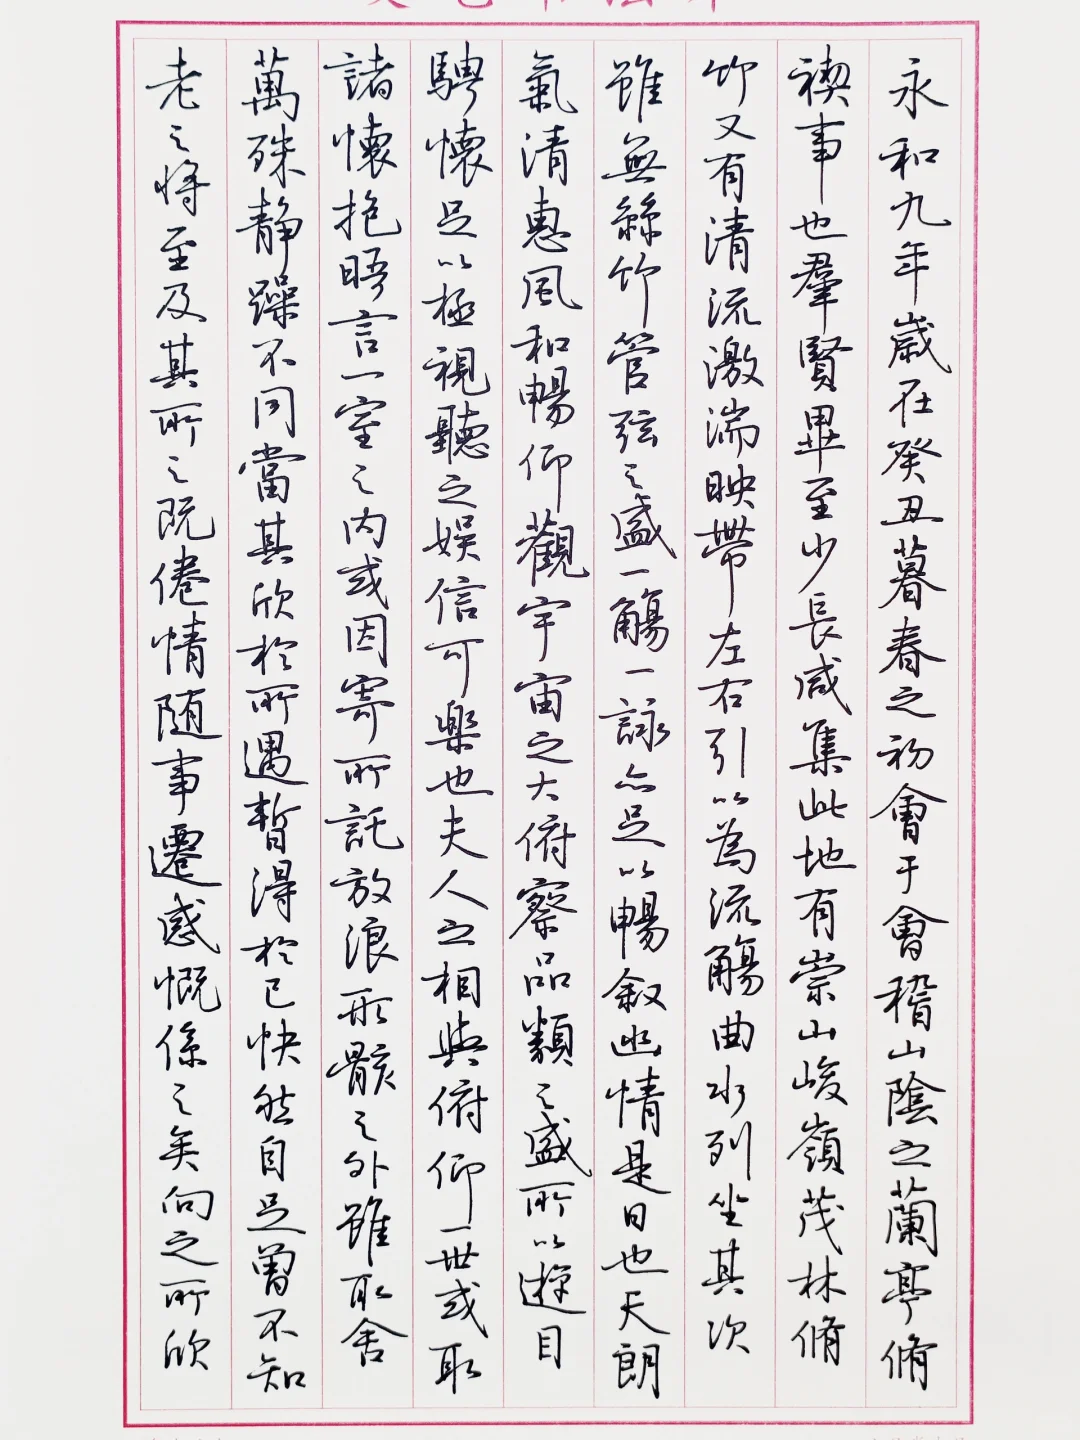 永和九年歲在癸丑暮春之初會于會稽山陰之蘭亭脩
禊事也羣賢畢至少長咸集此地有崇山峻嶺茂林脩
竹又有清流激湍映帶左右引以為流觴曲水列坐其次
雖無絲竹管弦之盛一觴一詠亦足以暢叙幽情是日也天朗
氣清惠風和暢仰觀宇宙之大俯察品類之盛所以遊目
騁懷足以極視聽之娛信可樂也夫人之相與俯仰一世或取
諸懷抱晤言一室之内或因寄所託放浪形骸之外雖取舍
萬殊静躁不同當其欣於所遇暫得於己快然自足曾不知
老之將至及其所之既倦情随事遷感慨係之矣向之所欣